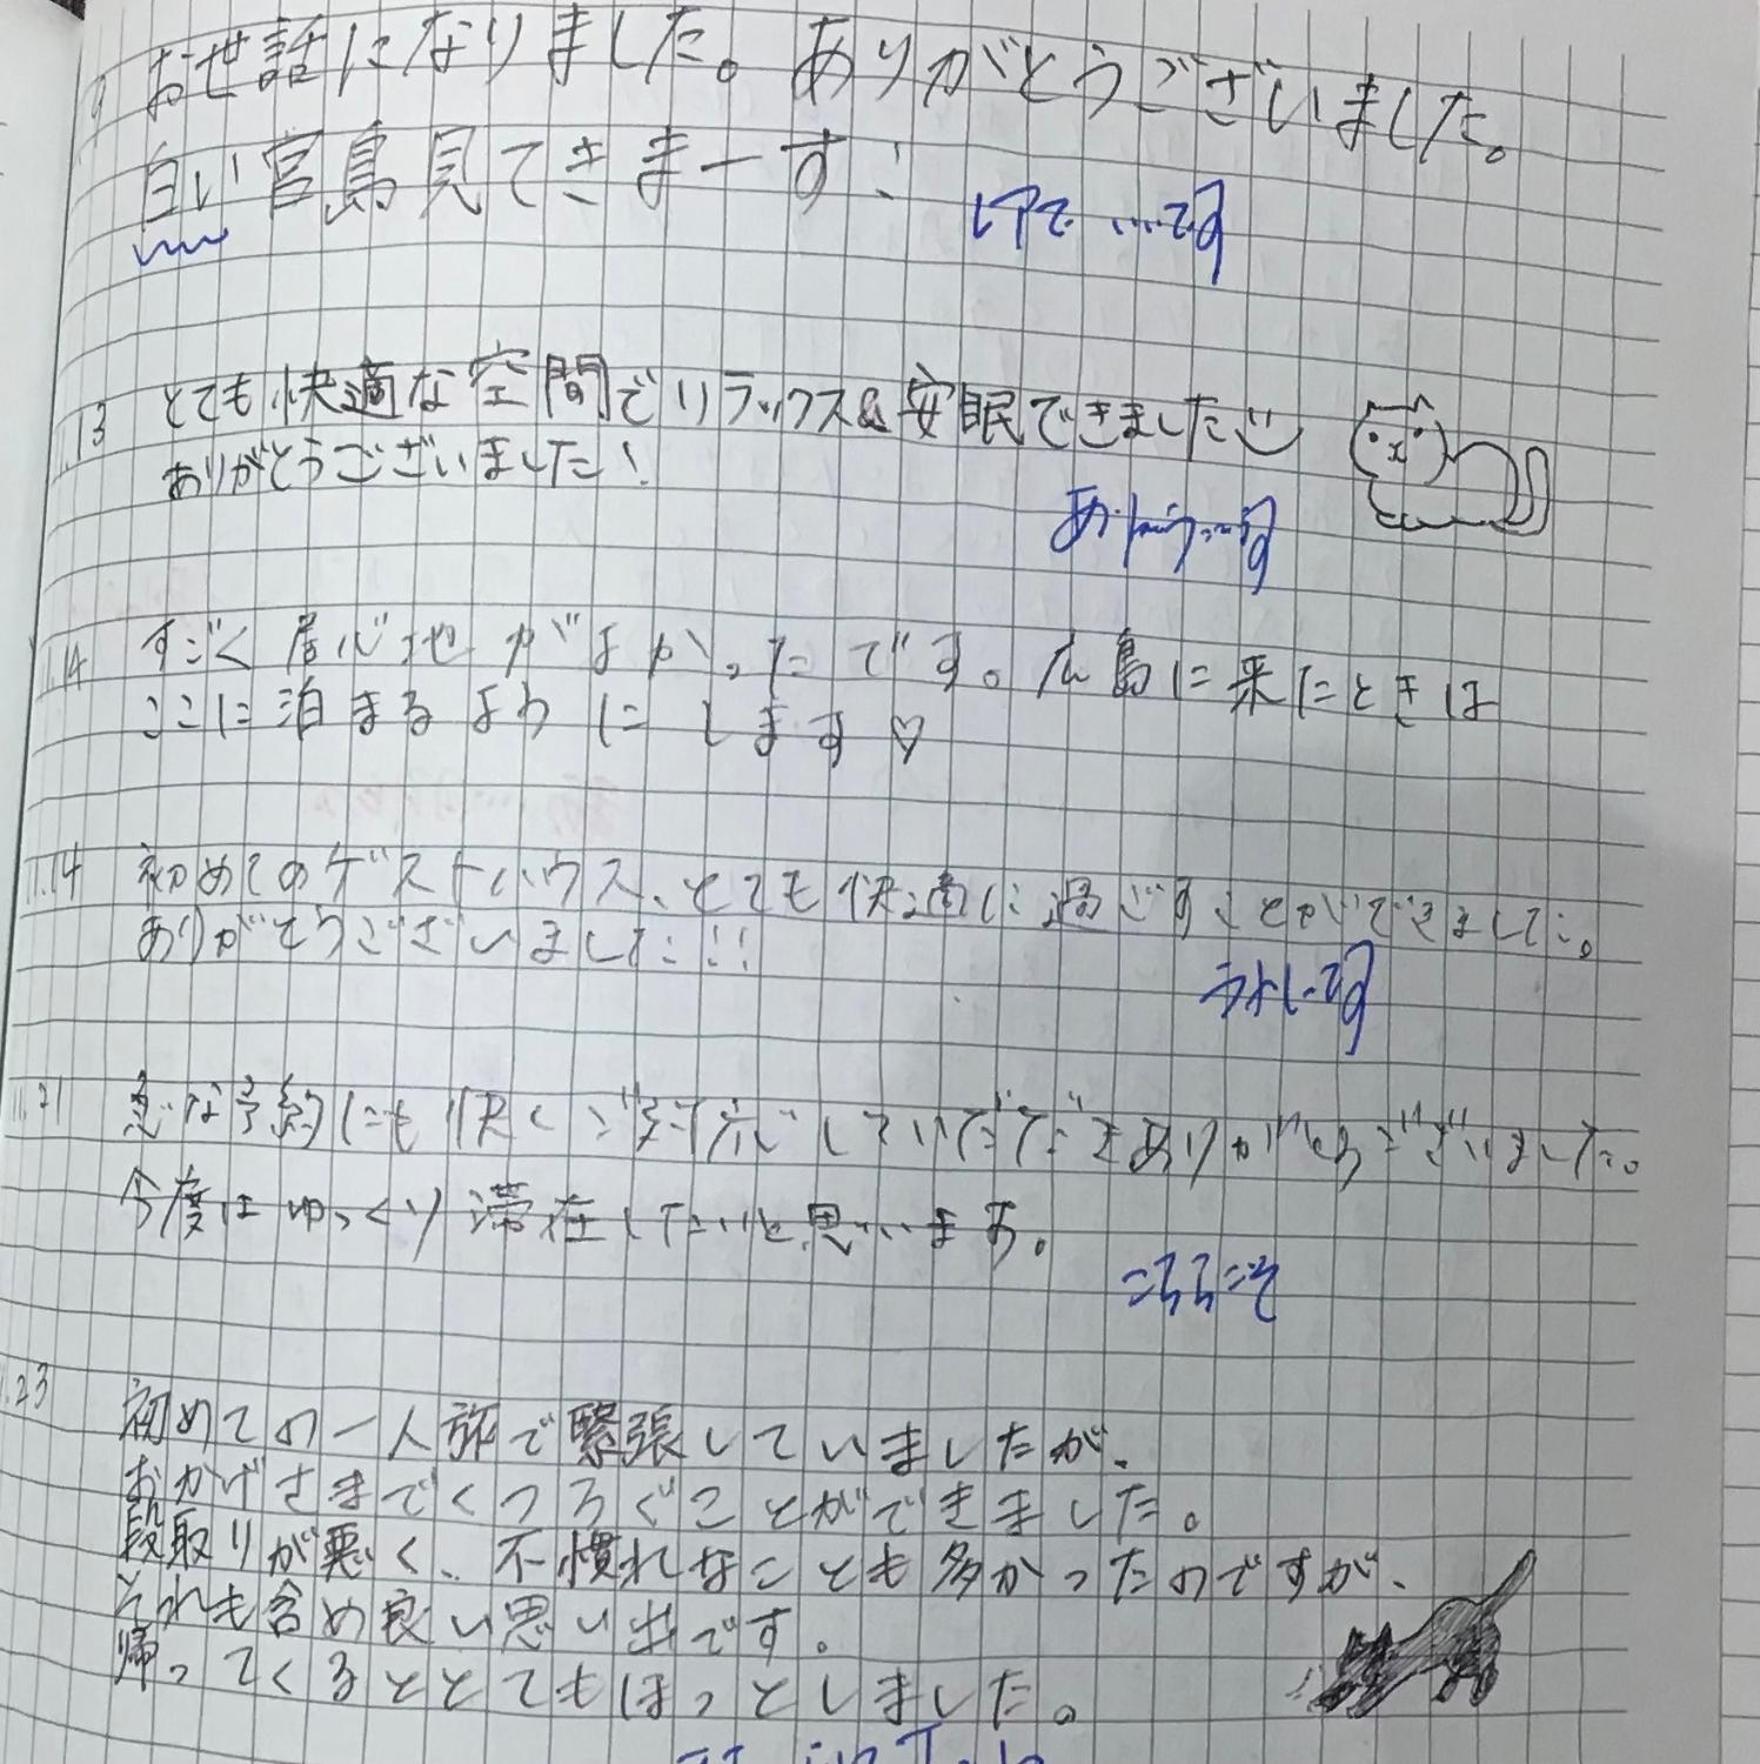 9 お世話になりました。ありがとうございました。
白い宮島見てきまーす!
レアで…です
.13 とても快適な空間でリラックス&安眠できました
ありがとうございました!
11.14 すごく居心地がよかったです。広島に来たときは
ここに泊まるようにします♡
11.14 初めてのゲストハウス、とても快適に過ごすことができました。
ありがとうございました!!!
うれしいです
11.21 急な予約にも快くご対応していただだきありがとうございました。
今度はゆっくり滞在したいと思います。
こちらこそ
.23 初めての一人旅で緊張していましたが、
おかげさまでくつろぐことができました。
段取りが悪く、不慣れなことも多かったのですが、
それも含め良い思い出です。
帰ってくるととてもほっとしました。